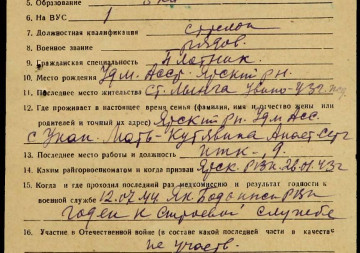 5. Образование
6. На ВУС 1
7. Должностная квалификация стрелок
8. Военное звание рядов.
9. Гражданская специальность плотник
10. Место рождения Удм. Асср. Ярский рн.
11. Последнее место жительства ст. Увино-
12. Где проживает в настоящее время семья (фамилия, имя и отчество жены или
родителей и точный их адрес) Ярский рн. Удм Асс.
с Укан. Мать-Кутявина Анаст
13. Последнее место работы и должность
14. Каким райгорвоенкоматом и когда призван Ярск. РВК
15. Когда и где проходил последний раз медкомиссию и результат годности к
военной службе 12.07.44 РВК
годен к строевой службе
16. Участие в Отечественной войне (в составе какой последней части в качест
не участв.